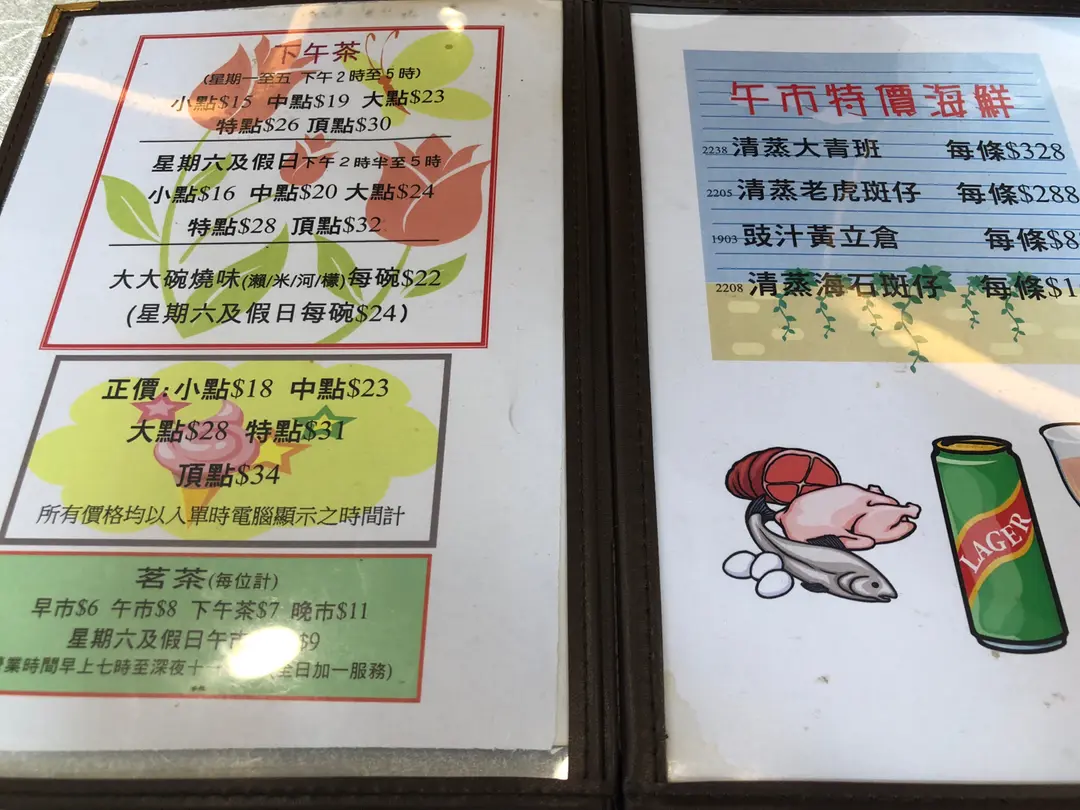 下午茶
(星期一至五 下午2時至5時)
小點$15 中點$19 大點$23
特點$26 頂點$30
星期六及假日下午2時半至5時
小點$16 中點$20 大點$24
特點$28 頂點$32
大大碗燒味(瀨/米/河/檬)每碗$22
(星期六及假日每碗$24)
正價:小點$18 中點$23
大點$28 特點$31
頂點$34
所有價格均以入單時電腦顯示之時間計
茗茶(每位計)
早市$6 午市$8 下午茶$7 晚市$11
星期六及假日午市 $9
業時間早上七時至深夜十 (全日加一服務)
午市特價海鮮
2238 清蒸大青班 每條$328
2205 清蒸老虎斑仔 每條$288
1903 豉汁黃立倉 每條$8
2208 清蒸海石斑仔 每條$1
LAGER